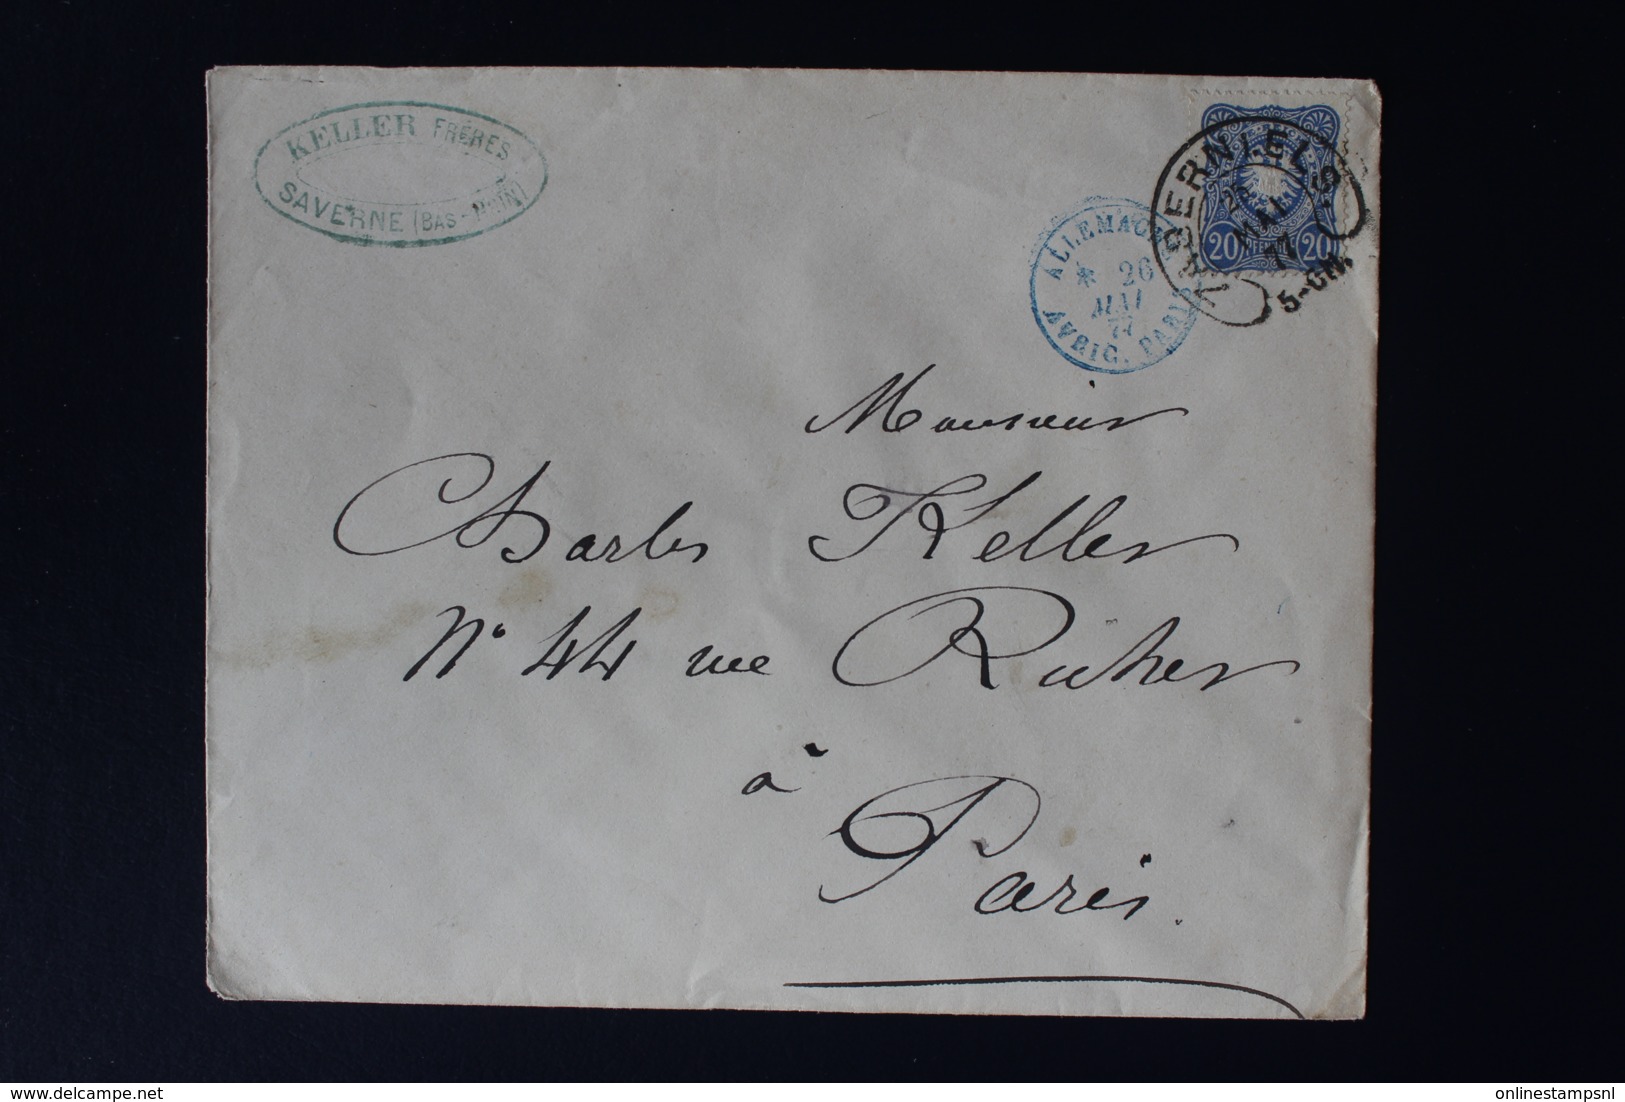 KELLER FRÈRES
SAVERNE (BAS-RHIN)
ALLEMAGNE
* 26
MAI
77
AVRIC. PARIS
25
MAI
77
5-6N.
20 PFENNIG 20
Monsieur
Charles Keller
N° 44 rue Richer
à
Paris.
delcampe.net
onlinestampsnl